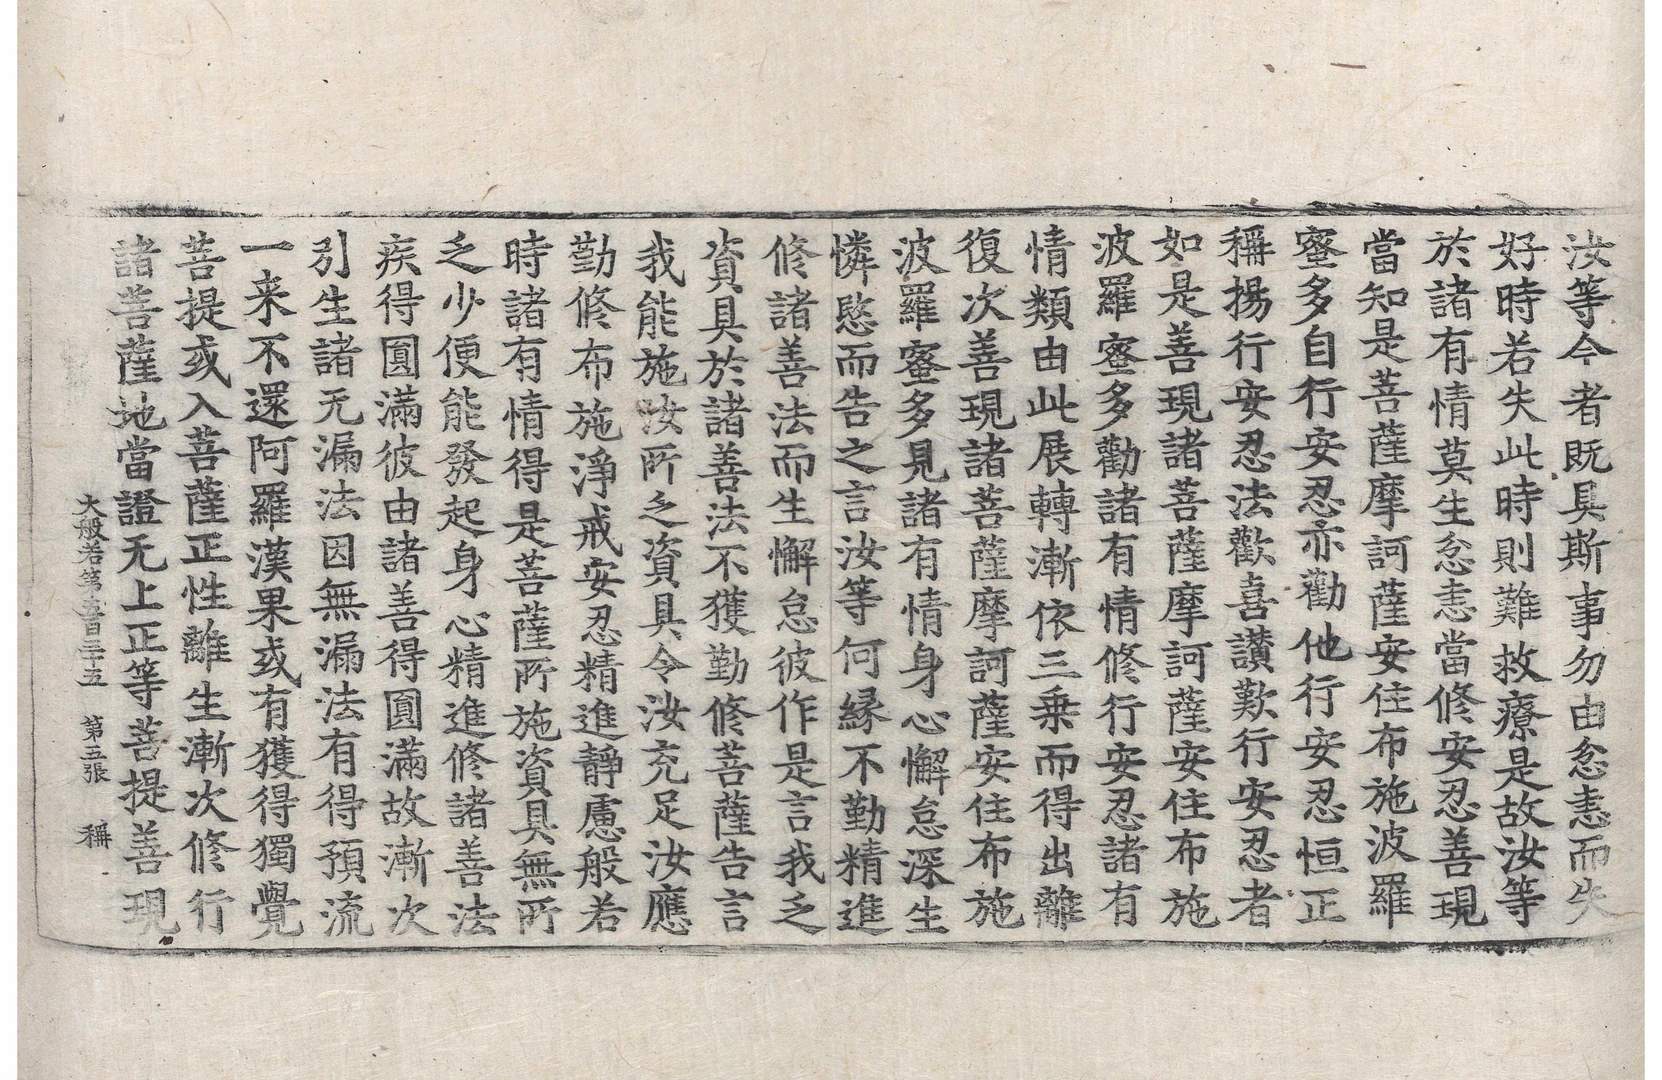 汝等今者既具斯事勿由忿恚而失
好時若失此時則難救療是故汝等
於諸有情莫生忿恚當修安忍善現
當知是菩薩摩訶薩安住布施波羅
蜜多自行安忍亦勸他行安忍恒正
稱揚行安忍法歡喜讃歎行安忍者
如是善現諸菩薩摩訶薩安住布施
波羅蜜多勸諸有情修行安忍諸有
情類由此展轉漸依三乗而得出離
復次善現諸菩薩摩訶薩安住布施
波羅蜜多見諸有情身心懈怠深生
憐愍而告之言汝等何縁不勤精進
修諸善法而生懈怠彼作是言我乏
資具於諸善法不獲勤修菩薩告言
我能施汝所乏資具令汝充足汝應
勤修布施淨戒安忍精進靜慮般若
時諸有情得是菩薩所施資具無所
乏少便能發起身心精進修諸善法
疾得圓滿彼由諸善得圓滿故漸次
引生諸无漏法因無漏法有得預流
一来不還阿羅漢果或有獲得獨覺
菩提或入菩薩正性離生漸次修行
諸菩薩地當證无上正等菩提善現
大般若第五百二十五 第五張 稱